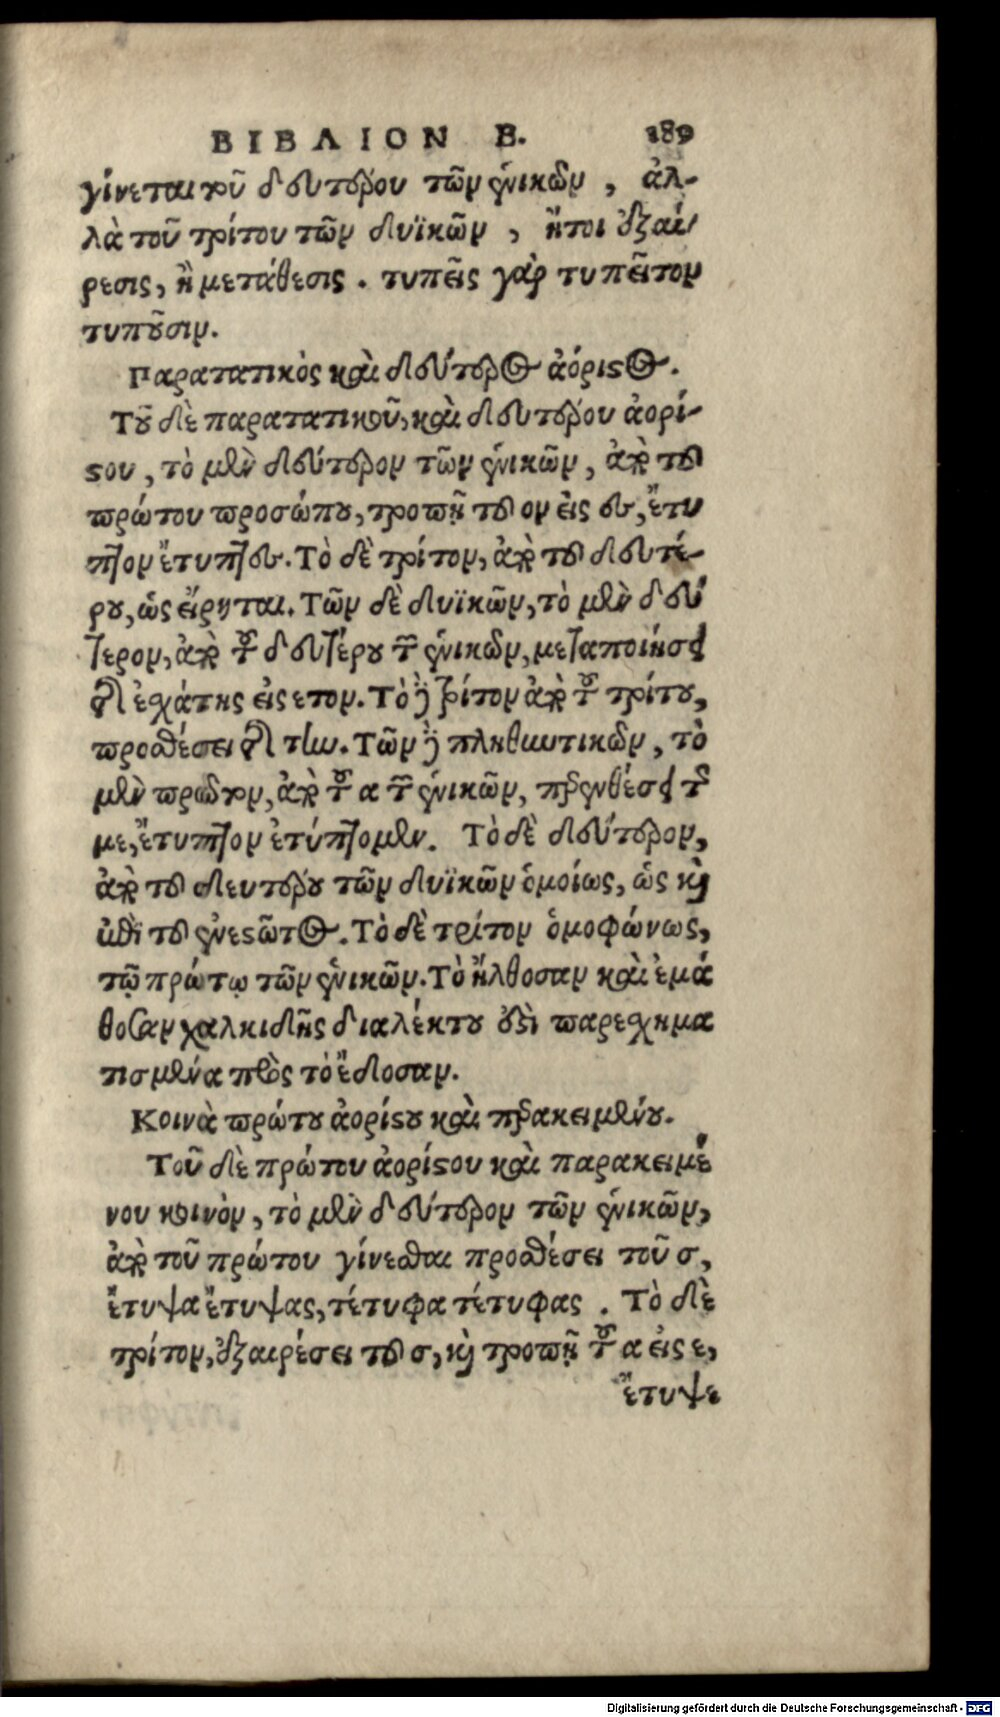 ΒΙΒΛΙΟΝ Β. 189
γίνεται τοῦ δευτέρου τῶν ἑνικῶν, ἀλ-
λὰ τοῦ τρίτου τῶν δυϊκῶν, ἤτοι ἐξαί-
ρεσις, ἢ μετάθεσις. τυπεῖς γὰρ τυπεῖτον
τυποῦσιν.
Παρατατικὸς καὶ δεύτερος ἀόριστος.
Τοῦ δὲ παρατατικοῦ, καὶ δευτέρου ἀορί-
στου, τὸ μὲν δεύτερον τῶν ἑνικῶν, ἀπὸ τοῦ
πρώτου προσώπου, τροπῇ τοῦ ον εἰς ες, ἔτυ
πτον ἔτυπτες. Τὸ δὲ τρίτον, ἀπὸ τοῦ δευτέ-
ρου, ὡς εἴρηται. Τῶν δὲ δυϊκῶν, τὸ μὲν δεύ
τερον, ἀπὸ τοῦ δευτέρου τῶν ἑνικῶν, μεταποιήσει
τῆς ἐσχάτης εἰς ετον. Τὸ δὲ τρίτον ἀπὸ τοῦ τρίτου,
προσθέσει τῆς την. Τῶν δὲ πληθυντικῶν, τὸ
μὲν πρῶτον, ἀπὸ τοῦ α τῶν ἑνικῶν, παρενθέσει τοῦ
με, ἔτυπτον ἐτύπτομεν. Τὸ δὲ δεύτερον,
ἀπὸ τοῦ δευτέρου τῶν δυϊκῶν ὁμοίως, ὡς καὶ
ἐπὶ τοῦ ἐνεστῶτος. Τὸ δὲ τρίτον ὁμοφώνως,
τῷ πρώτῳ τῶν ἑνικῶν. Τὸ ἤλθοσαν καὶ ἐμά
θοσαν χαλκιδῆς διαλέκτου ἐστὶ παρεσχημα
τισμένα πρὸς τὸ ἔδοσαν.
Κοινὰ πρώτου ἀορίστου καὶ παρακειμένου.
Τοῦ δὲ πρώτου ἀορίστου καὶ παρακειμέ
νου κοινὸν, τὸ μὲν δεύτερον τῶν ἑνικῶν,
ἀπὸ τοῦ πρώτου γίνεσθαι προσθέσει τοῦ σ,
ἔτυψα ἔτυψας, τέτυφα τέτυφας. Τὸ δὲ
τρίτον, ἐξαιρέσει τοῦ σ, καὶ τροπῇ τοῦ α εἰς ε,
ἔτυψε
Digitalisierung gefördert durch die Deutsche Forschungsgemeinschaft - DFG